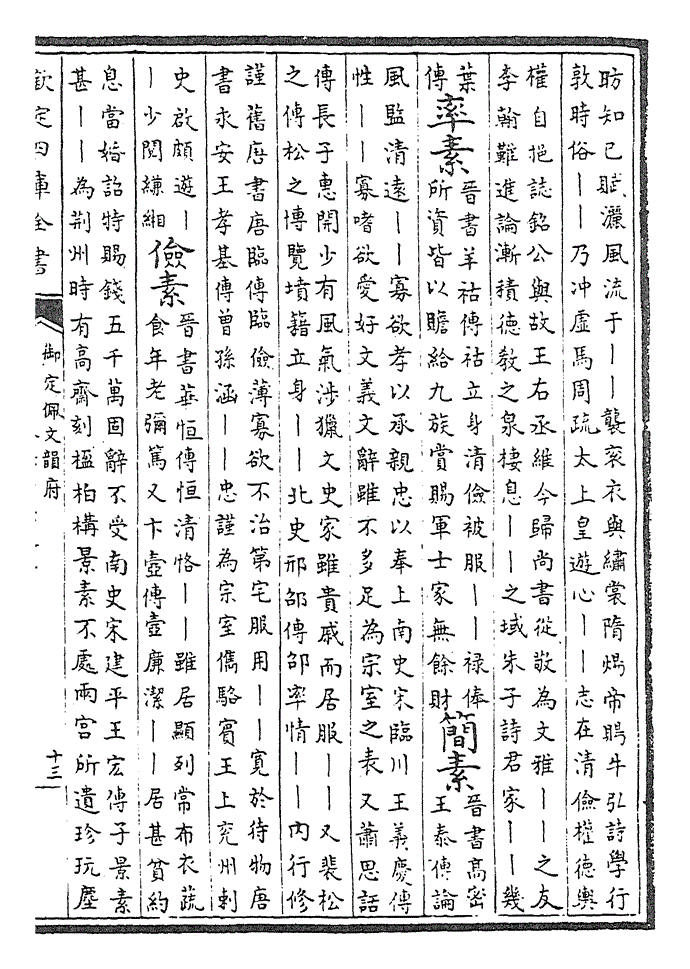 昉知已賦灑風流于丨丨襲衮衣與繡裳隋煬帝賜牛弘詩學行
敦時俗丨丨乃冲虛馬周疏太上皇遊心丨丨志在清儉權德輿
權自挹誌銘公與故王右丞維今歸尚書從敬為文雅丨丨之友
李翰難進論漸積德教之泉棲息丨丨之域朱子詩君家丨丨幾
葉
傳
率素
晉書羊祜傳祜立身清儉被服丨丨禄俸
所資皆以贍給九族賞賜軍士家無餘財
簡素
晉書高密
王泰傳論
風監清遠丨丨寡欲孝以承親忠以奉上南史宋臨川王義慶傳
性丨丨寡嗜欲愛好文義文辭雖不多足為宗室之表又蕭思話
傳長子惠開少有風氣涉獵文史家雖貴戚而居服丨丨又裴松
之傳松之博覽墳籍立身丨丨北史邢邵傳邵率情丨丨内行修
謹舊唐書唐臨傳臨儉薄寡欲不治第宅服用丨丨寛於待物唐
書永安王孝基傳曾孫涵丨丨忠謹為宗室儁駱賓王上兖州刺
史啟頗遊丨
丨少閱縑緗
儉素
晉書華恒傳恒清恪丨丨雖居顯列常布衣蔬
食年老彌篤又卞壼傳壼廉潔丨丨居甚貧約
息當婚詔特賜錢五千萬固辭不受南史宋建平王宏傳子景素
甚丨丨為荆州時有高齋刻楹柏構景素不處兩宫所遺珍玩塵
欽定四庫全書
御定佩文韻府
十三